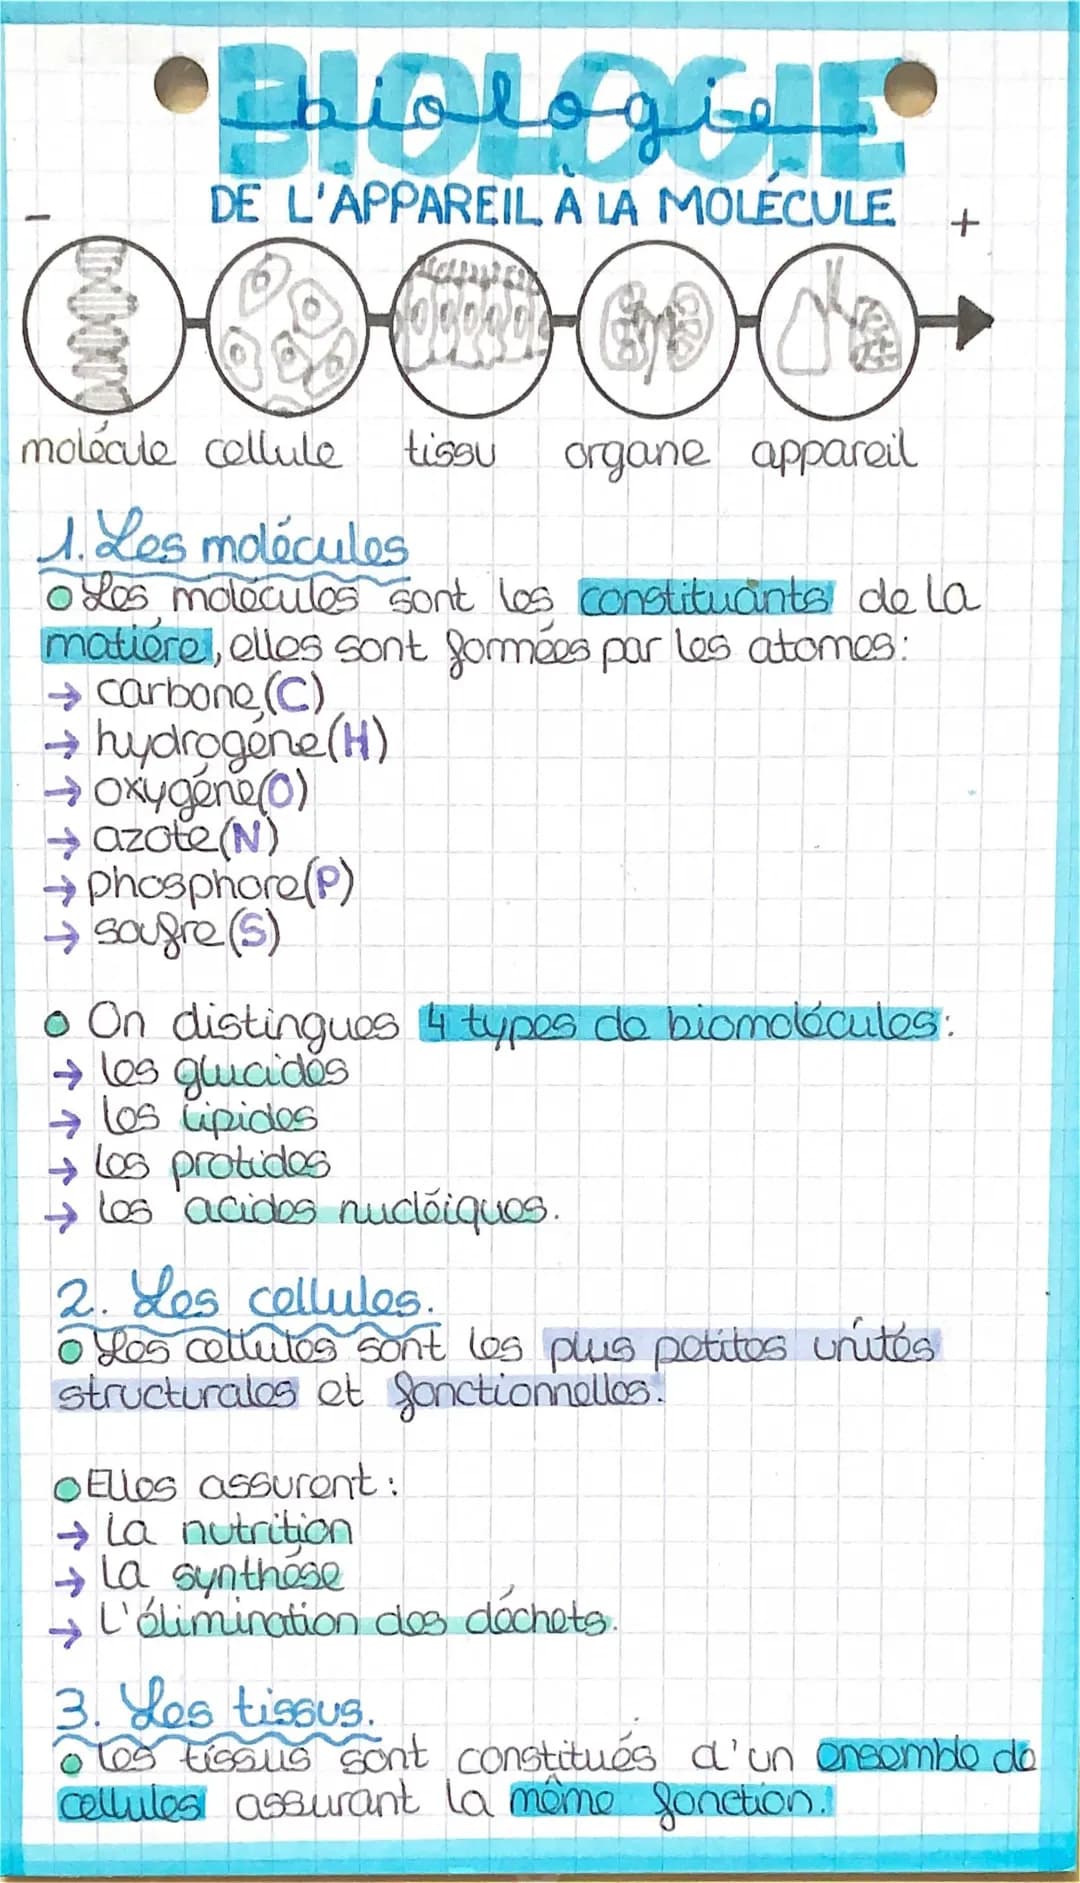 BIOLOGIE
biologie
DE L'APPAREIL À LA MOLÉCULE
- +
molécule cellule tissu organe appareil
1. Les molécules
Les molécules sont les constituants de la
matière, elles sont formées par les atomes:
→ carbone (C)
→ hydrogène (H)
→ oxygène (O)
→ azote (N)
→ phosphore (P)
→ soufre (S)
On distingues 4 types de biomolécules:
→ les glucides
→ les lipides
→ les protides
→ les acides nucléiques.
2. Les cellules.
Les cellules sont les plus petites unités
structurales et fonctionnelles.
Elles assurent:
→ La nutrition
→ La synthèse
→ L'élimination des déchets.
3. Les tissus.
Les tissus sont constitués d'un ensemble de
cellules assurant la même fonction.